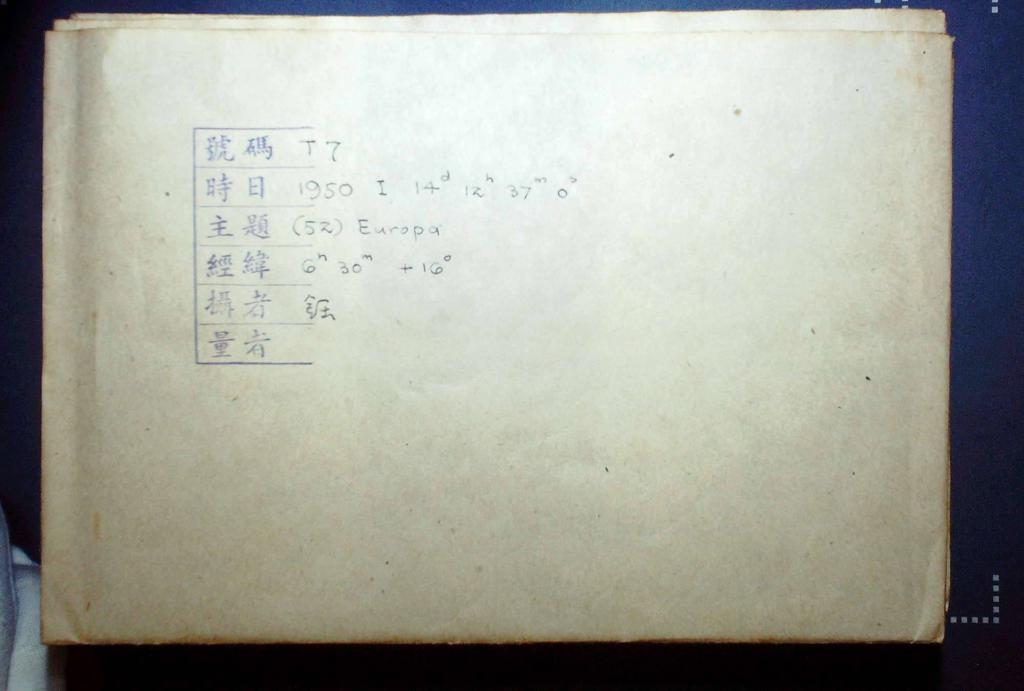 號碼 T7
時日 1950 I 14ᵈ 12ʰ 37ᵐ 0ˢ
主題 (52) Europa
經緯 6ʰ 30ᵐ +16°
攝者
量者